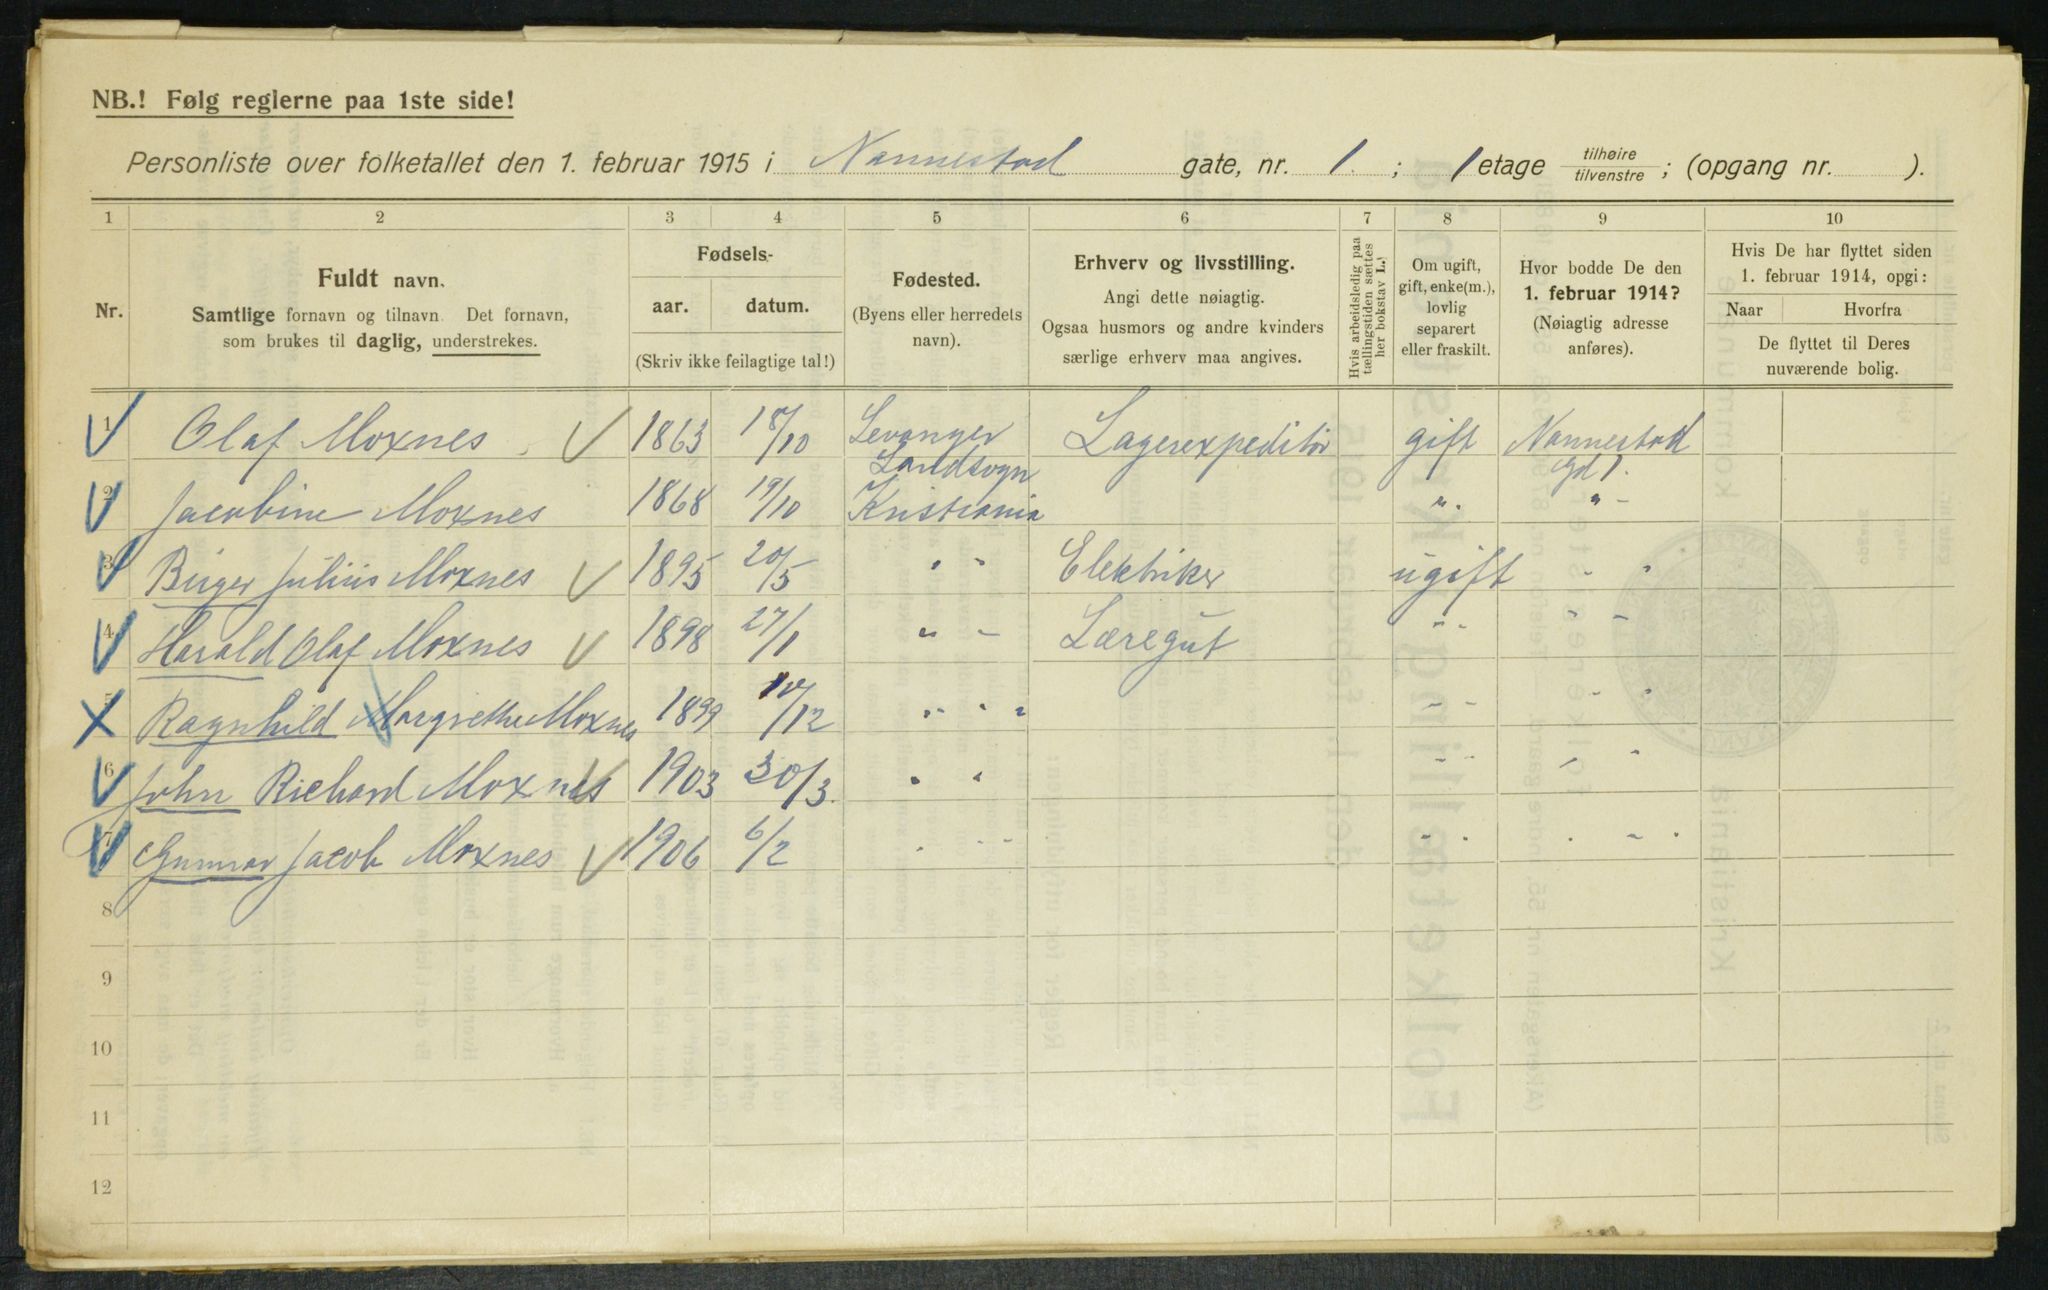 NB.! Følg reglerne paa 1ste side!
Personliste over folketallet den 1. februar 1915 i Nannestad gate, nr. 1. ; 1 etage tilhøire / tilvenstre ; (opgang nr. ).
1 2 3 4 5 6 7 8 9 10
Nr.
Fuldt navn.
Samtlige fornavn og tilnavn. Det fornavn,
som brukes til daglig, understrekes.
Fødsels-
aar. datum.
(Skriv ikke feilagtige tal!)
Fødested.
(Byens eller herredets
navn).
Erhverv og livsstilling.
Angi dette nøiagtig.
Ogsaa husmors og andre kvinders
særlige erhverv maa angives.
Hvis arbeidsledig paa
tællingstiden sættes
her bokstav L.
Om ugift,
gift, enke(m.),
lovlig
separert
eller fraskilt.
Hvor bodde De den
1. februar 1914?
(Nøiagtig adresse
anføres).
Hvis De har flyttet siden
1. februar 1914, opgi:
Naar Hvorfra
De flyttet til Deres
nuværende bolig.
1 Olaf Moxnes 1863 18/10 Levanger Landsogn Lagerexpeditør gift Nannestad gd 1.
2 Jacobine Moxnes 1868 19/10 Kristiania " . " -
3 Birger Julius Moxnes 1895 20/5 " " Elektriker ugift " "
4 Harald Olaf Moxnes 1898 27/1 " - Læregut " " " -
5 Ragnhild Margrethe Moxnes 1899 10/12 " " " - - - "
6 John Richard Moxnes 1903 30/3. " " " - - "
7 Gunnar Jacob Moxnes 1906 6/2 " " " - - " - "
8
9
10
11
12